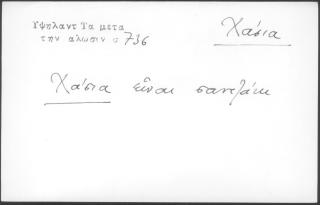 Υψηλαντ Τα μετα
την αλωσιν σ 736
Χάσια
Χάσια εἶναι σαντζάκι